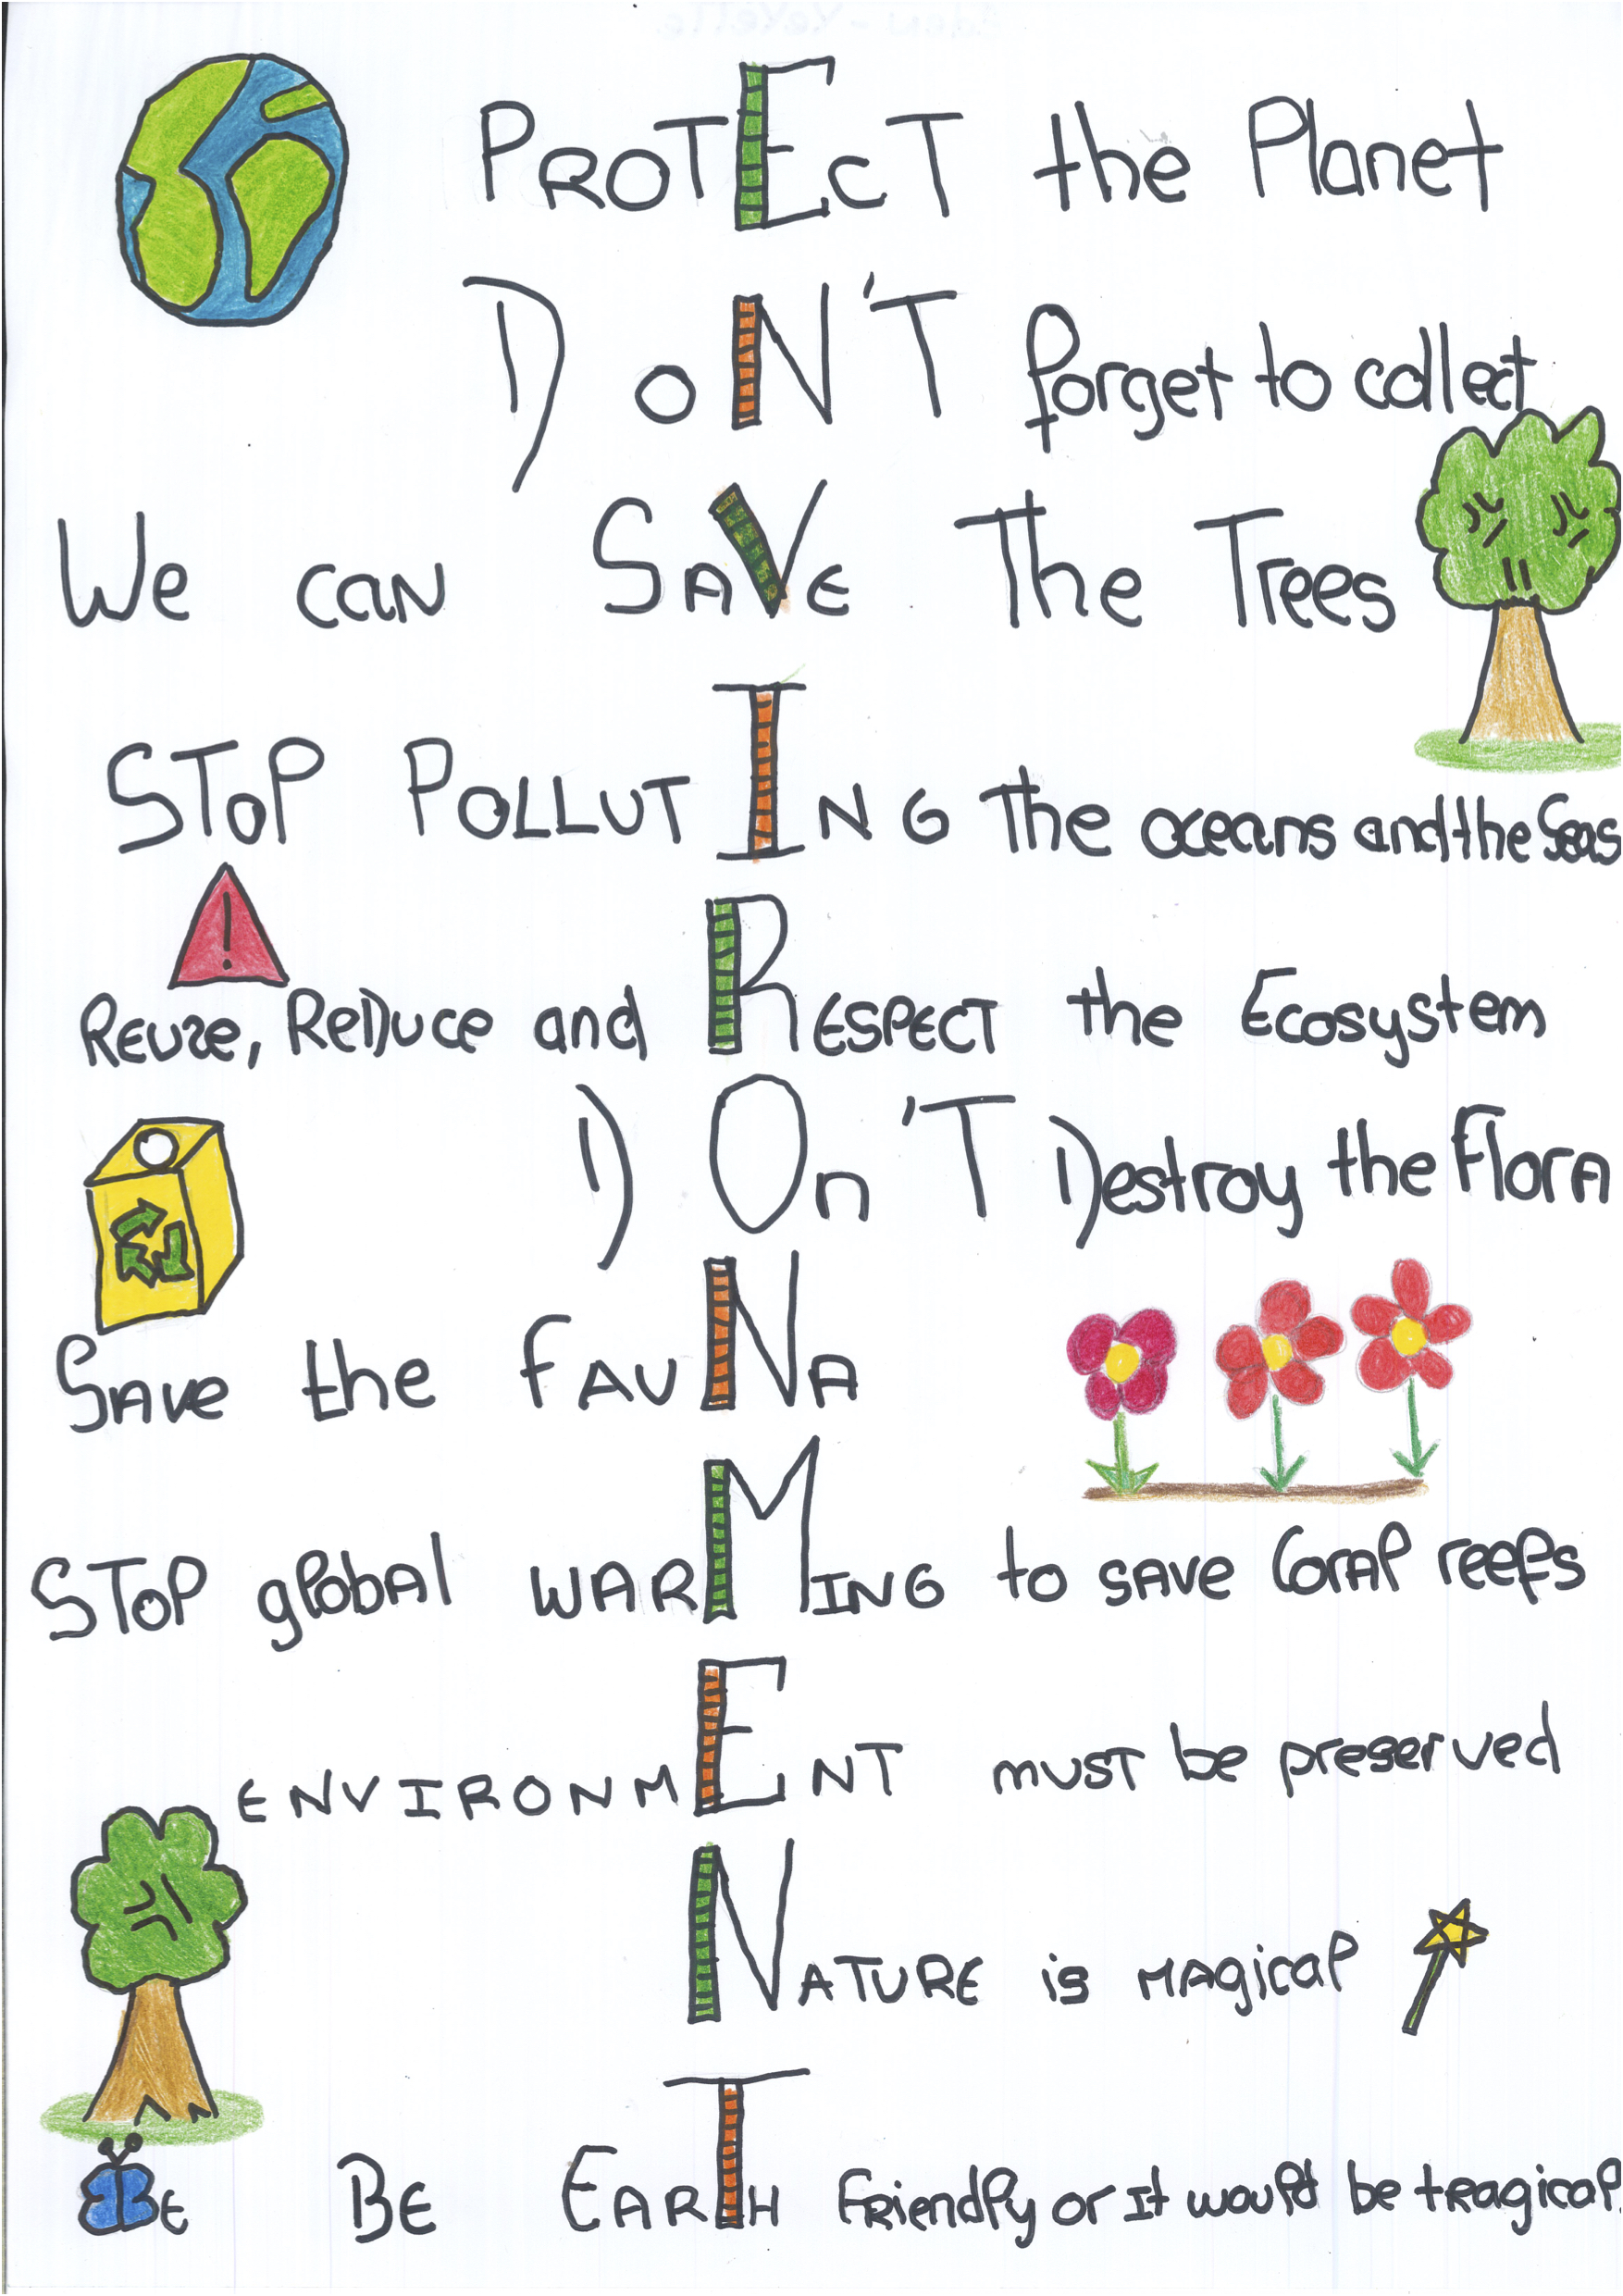 PROTEcT the Planet
DoN'T forget to collect
We can SAVE The Trees
STOP POLLUTING The oceans and the Seas
REUZE, REDUCE and RESPECT the Ecosystem
DOn'T Destroy the Flora
SAVE the FAUNA
STOP global WARMING to SAVE Coral reefs
ENVIRONMENT must be preserved
NATURE is MAgical
BE BE EARTH FRiendly or It would be tRagical.